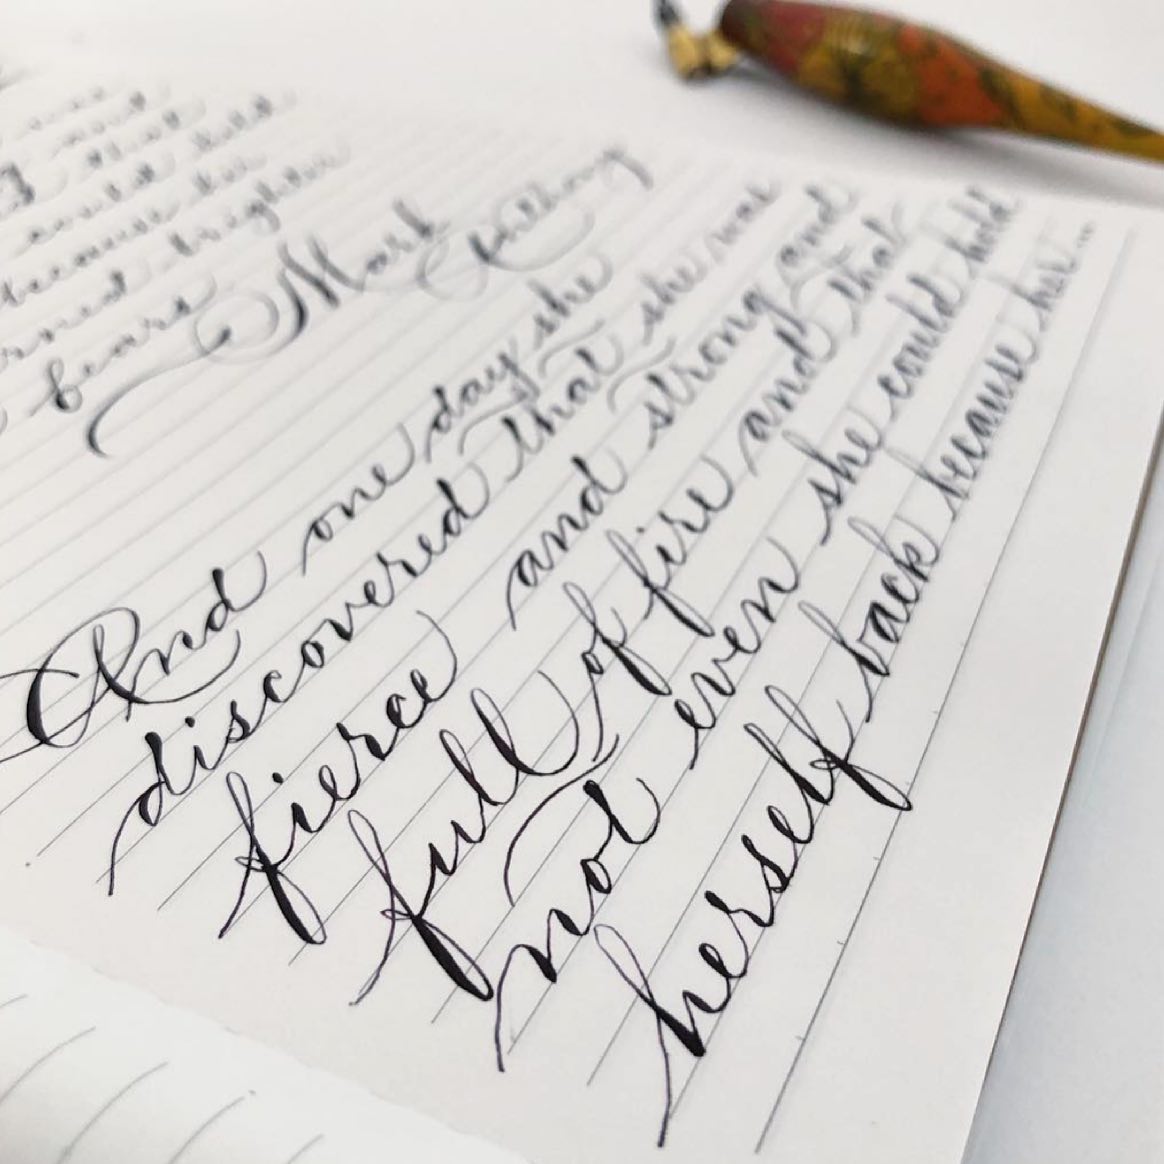 and
that
could hold
because her
burned brighter
fears
Mark Anthony
And one day she
discovered that she was
fierce and strong and
full of fire and that
not even she could hold
herself back because her...